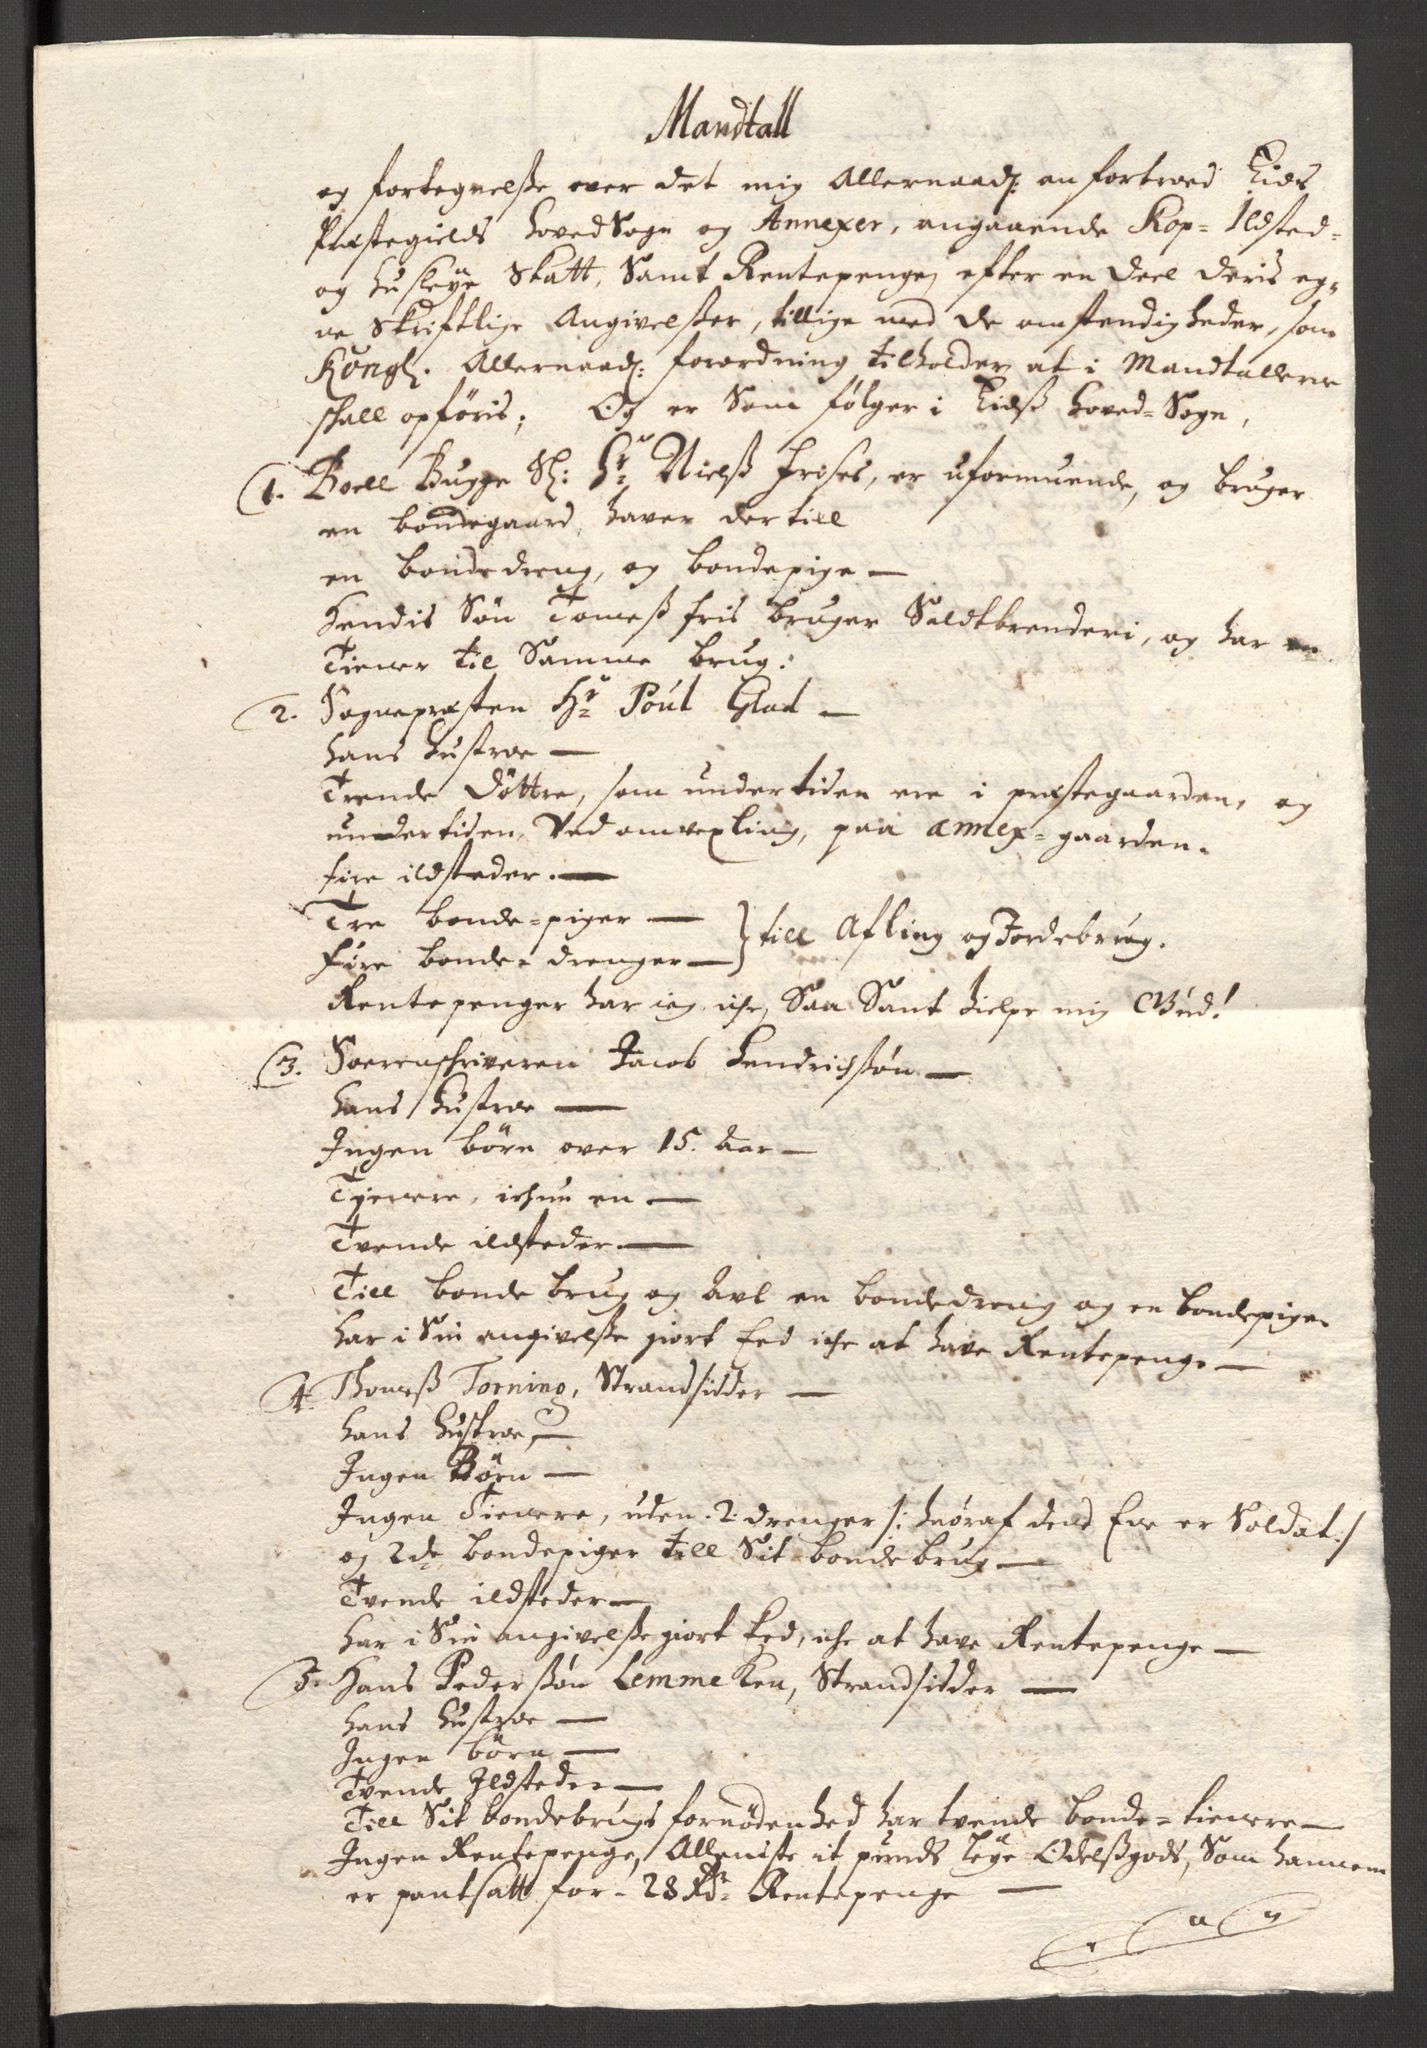 Mandtall
og fortegnelße over det mig Allernaad: anfortroed Eids
Præstegields HovedSogn og Annexer, angaaende Kop- Ildsted-
og Husleye Skatt, Samt Rentepenge, efter en deel deris eg-
ne Skriftlige Angivelßer, tillige med de omstendigheder, som
Kongl. Allernaad: forordning tilholder, at i Mandtallerne
skall opföris; Og er Som følger i Eidß Hoved-Sogn,
1. Boell Bugge Sl: Hr Nielß Frises, er uformuende, og bruger
en bondegaard, haver dertill
en bondedreng, og bondepige —
Hendis Søn Tomeß fris bruger Saldtbrenderi, og har en
Tiener til Samme brug:
2. Sognepræsten Hr Poul Glad —
Hans Hustroe —
Trende Döttre, som undertiden ere i præstegaarden, og
undertiden, Ved omvexling, paa annex-gaarden.
fire ildsteder. —
Tre bonde-piger —
Fire bonde-drenger — } till Afling og Jordebrug.
Rentepenger har ieg iche, Saa Sant hielpe mig Gud!
3. Sorenschriveren Jacob Hendrichßøn —
Hans Hustroe —
Ingen börn over 15. Aar —
Tjenere, ichun en —
Tvende ildsteder. —
Till bonde brug og Avl en bondedreng og en bondepige.
Har i Sin angivelße giort Eed iche at have Rentepenge —
4. Thomeß Torning, Strandsidder —
Hans Hustroe, —
Ingen Börn —
Ingen Tienere, uden. 2. drenger /: hvoraf dend Ene er Soldat :/
og 2de bondepiger till Sit bondebrug —
Tvende ildsteder —
Har i Sin angivelße giort Eed, iche at have Rentepenge —
5. Hans Pederßøn Lemmeken, Strandsidder —
Hans Hustroe —
Ingen börn —
Tvende Ildsteder —
Till Sit bondebrugs fornödenhed har tvende bonde-tienere —
Ingen Rentepenge, Alleniste it punds leye Odelßgods, Som hannem
er pantsatt for - 28 Rdr Rentepenge —